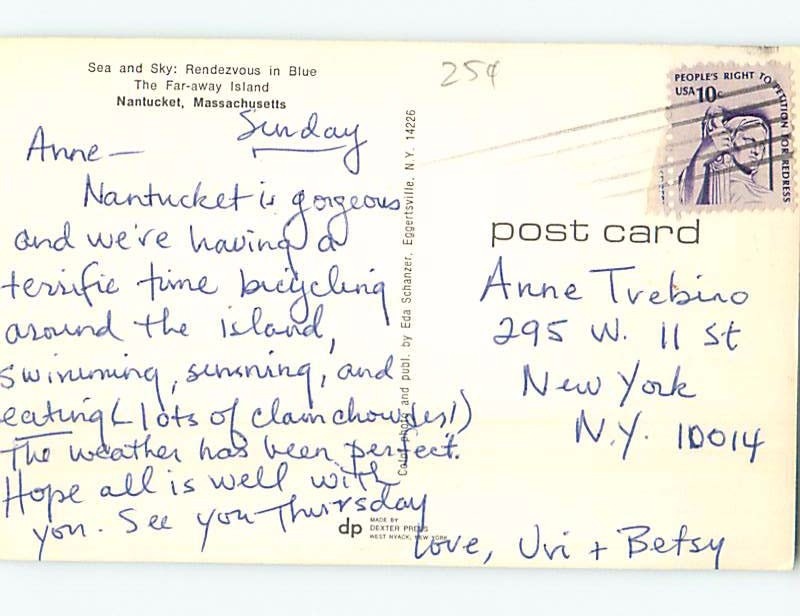 Sea and Sky: Rendezvous in Blue
The Far-away Island
Nantucket, Massachusetts
Sunday
Anne—
Nantucket is gorgeous
and we're having a
terrific time bicycling
around the island,
swimming, sunning, and
eating (lots of clam chowder!)
The weather has been perfect.
Hope all is well with
you. See you Thursday
Love, Uri + Betsy
Color photo and publ. by Eda Schanzer, Eggertsville, N.Y. 14226
dp
MADE BY
DEXTER PRESS
WEST NYACK, NEW YORK
25¢
PEOPLE'S RIGHT TO PETITION FOR REDRESS
USA 10c
post card
Anne Trebino
295 W. 11 St
New York
N.Y. 10014